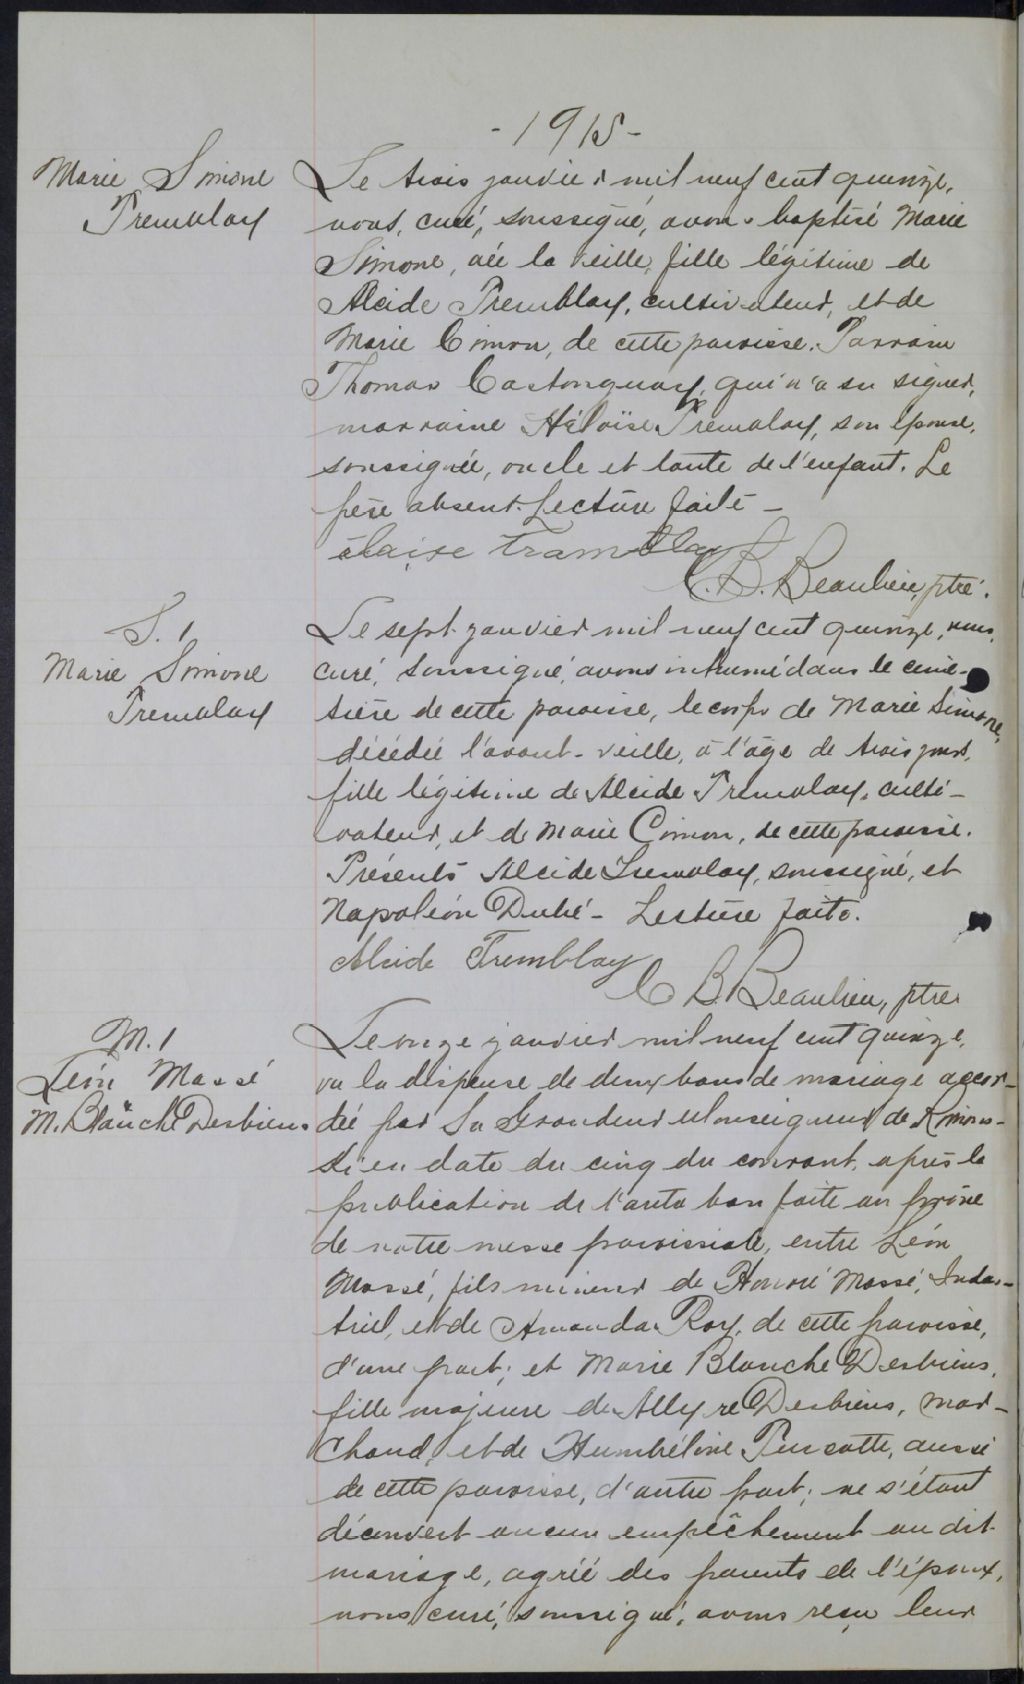 - 1915 -
Marie Simone
Tremblay
Le trois janvier mil neuf cent quinze,
nous, curé, soussigné, avons baptisé Marie
Simone, née la veille, fille légitime de
Alcide Tremblay, cultivateur, et de
Marie Cimon, de cette paroisse. Parrain
Thomas Castonguay, qui n'a su signer,
marraine Héloïse Tremblay, son épouse,
soussignée, oncle et tante de l'enfant. Le
père absent. Lecture faite -
élaise Tramblay
C. B. Beaulieu, ptre.
S. 1
Marie Simone
Tremblay
Le sept janvier mil neuf cent quinze, nous,
curé, soussigné, avons inhumé dans le cime-
tière de cette paroisse, le corps de Marie Simone,
décédée l'avant-veille, à l'âge de trois jours,
fille légitime de Alcide Tremblay, culti-
vateur, et de Marie Cimon, de cette paroisse.
Présents Alcide Tremblay, soussigné, et
Napoléon Dubé - Lecture faite.
Alcide Tremblay
C B. Beaulieu, ptre
M. 1
Léon Massé
&
M. Blanche Desbiens
Le onze janvier mil neuf cent quinze,
vu la dispense de deux bans de mariage accor-
dée par Sa Grandeur Monseigneur de Rimous-
ki en date du cinq du courant, après la
publication de l'autre ban faite au prône
de notre messe paroissiale, entre Léon
Massé, fils mineur de Honoré Massé, Indus-
triel, et de Amanda Roy, de cette paroisse,
d'une part; et Marie Blanche Desbiens,
fille majeure de Allyre Desbiens, mar-
chand, et de Humbéline Turcotte, aussi
de cette paroisse, d'autre part; ne s'étant
découvert aucun empêchement au dit
mariage, agréé des parents de l'époux,
nous curé, soussigné, avons reçu leur